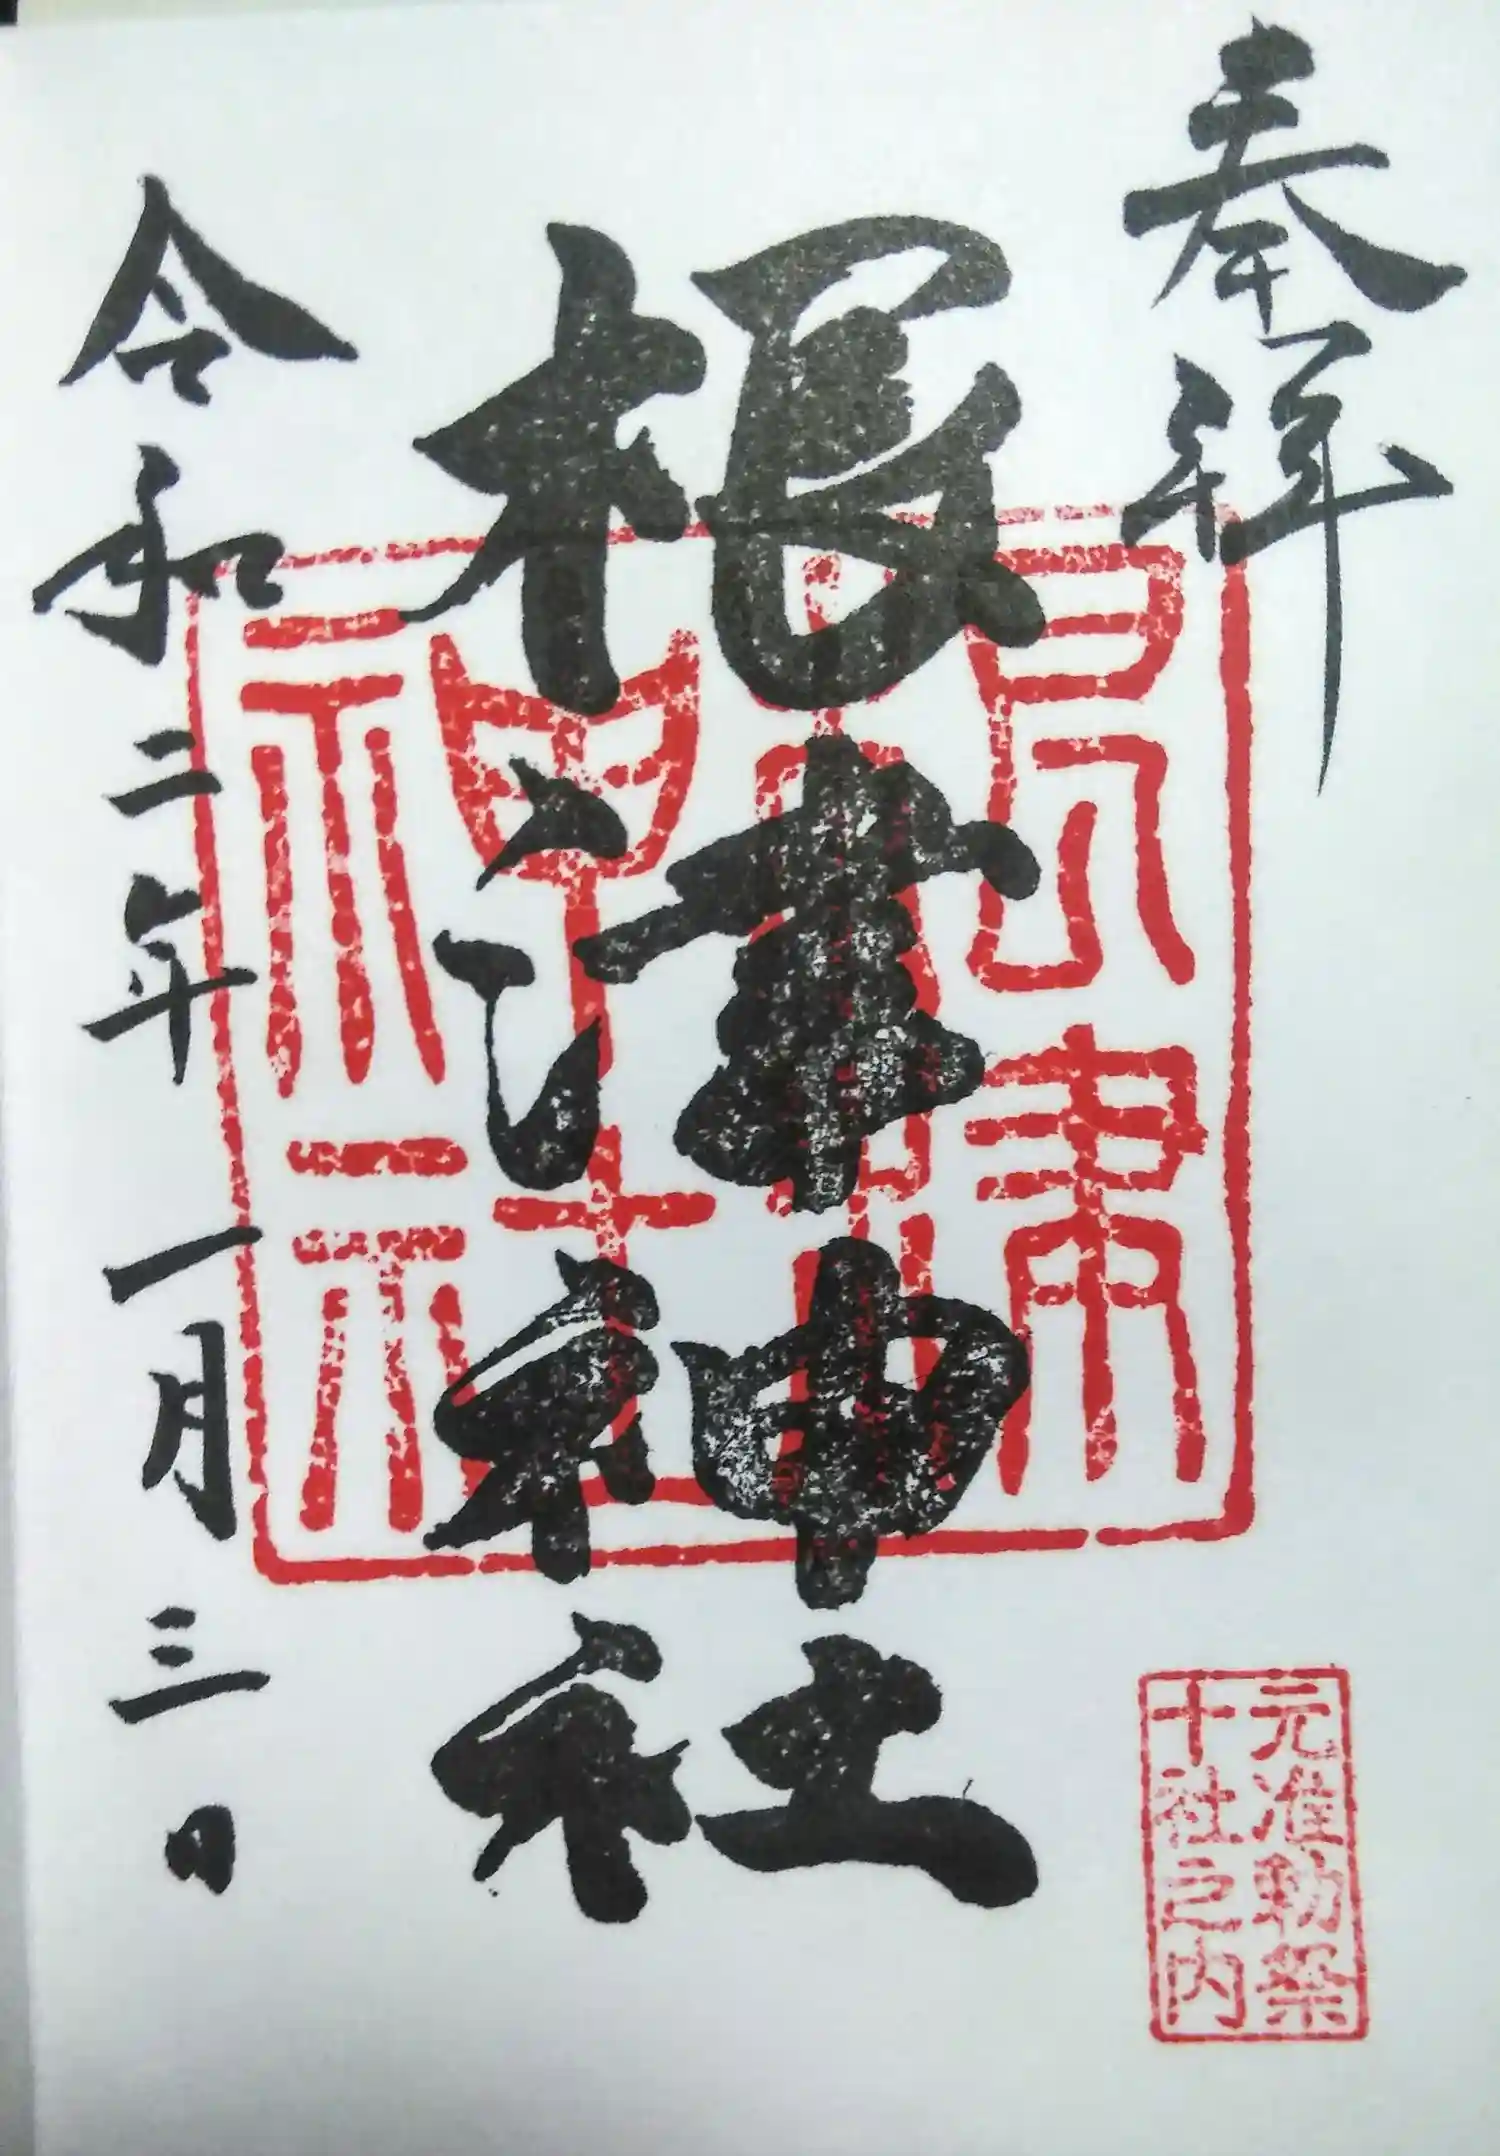 奉拝
根津神社
令和二年一月三日
元准勅祭
十社之内